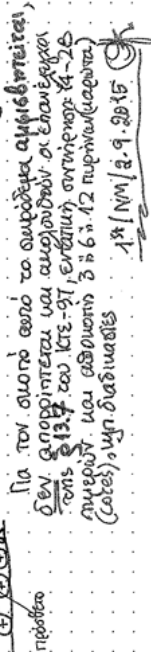 Για τον σκοπό αυτό το σκυρόδεμα αμφισβητείται,
δεν απορρίπτεται και ακολουθούν οι επανέλεγχοι
της §13.7 του ΚΤΣ-97, εντατική συντήρηση 14-28
ημερών και αποκοπή 3 ή 6 ή 12 πυρήνων (καρότα)
(cores), κλπ. διαδικασίες.
1η/ΝΜ/2.9.2015
πρόσθετο